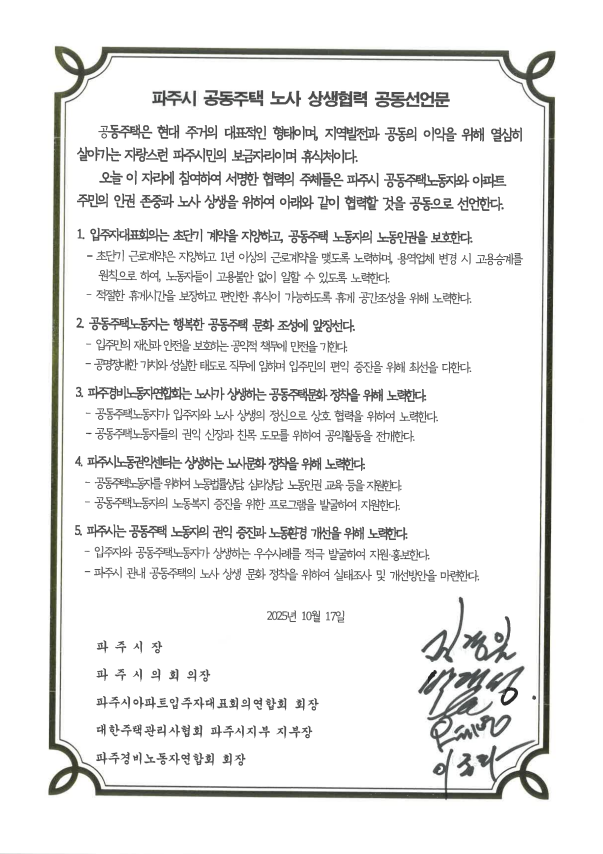 파주시 공동주택 노사 상생협력 공동선언문
공동주택은 현대 주거의 대표적인 형태이며, 지역발전과 공동의 이익을 위해 열심히
살아가는 자랑스런 파주시민의 보금자리이며 휴식처이다.
오늘 이 자리에 참여하여 서명한 협력의 주체들은 파주시 공동주택노동자와 아파트
주민의 인권 존중과 노사 상생을 위하여 아래와 같이 협력할 것을 공동으로 선언한다.
1. 입주자대표회의는 초단기 계약을 지양하고, 공동주택 노동자의 노동인권을 보호한다.
- 초단기 근로계약은 지양하고 1년 이상의 근로계약을 맺도록 노력하며, 용역업체 변경 시 고용승계를
원칙으로 하여, 노동자들이 고용불안 없이 일할 수 있도록 노력한다.
- 적절한 휴게시간을 보장하고 편안한 휴식이 가능하도록 휴게 공간조성을 위해 노력한다.
2. 공동주택노동자는 행복한 공동주택 문화 조성에 앞장선다.
- 입주민의 재산과 안전을 보호하는 공익적 책무에 만전을 기한다.
- 공명정대한 가치와 성실한 태도로 직무에 임하며 입주민의 편익 증진을 위해 최선을 다한다.
3. 파주경비노동자연합회는 노사가 상생하는 공동주택문화 정착을 위해 노력한다.
- 공동주택노동자가 입주자와 노사 상생의 정신으로 상호 협력을 위하여 노력한다.
- 공동주택노동자들의 권익 신장과 친목 도모를 위하여 공익활동을 전개한다.
4. 파주시노동권익센터는 상생하는 노사문화 정착을 위해 노력한다.
- 공동주택노동자를 위하여 노동법률상담, 심리상담, 노동인권 교육 등을 지원한다.
- 공동주택노동자의 노동복지 증진을 위한 프로그램을 발굴하여 지원한다.
5. 파주시는 공동주택 노동자의 권익 증진과 노동환경 개선을 위해 노력한다.
- 입주자와 공동주택노동자가 상생하는 우수사례를 적극 발굴하여 지원·홍보한다.
- 파주시 관내 공동주택의 노사 상생 문화 정착을 위하여 실태조사 및 개선방안을 마련한다.
2025년 10월 17일
파주시장
파주시의회의장
파주시아파트입주자대표회의연합회 회장
대한주택관리사협회 파주시지부 지부장
파주경비노동자연합회 회장